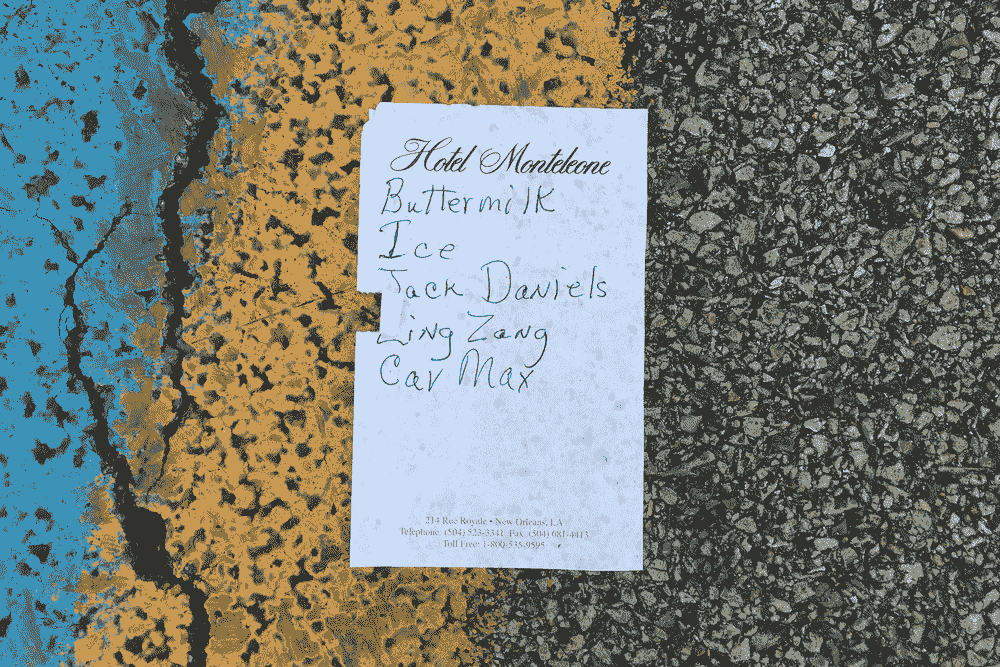 Hotel Monteleone
Buttermilk
Ice
Jack Daniels
Ling Zang
Car Max
214 Rue Royale • New Orleans, LA
Telephone: (504) 523-3341 Fax: (504) 681-4413
Toll Free: 1-800-535-9595